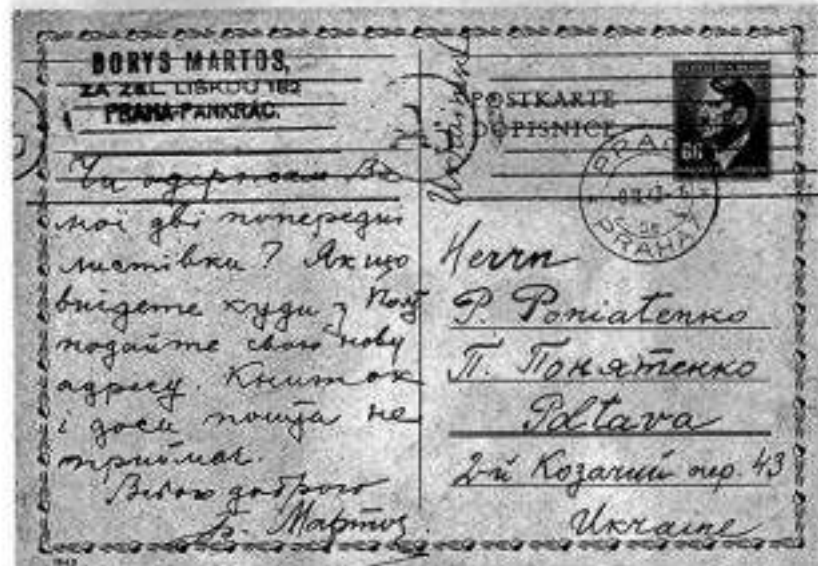 BORYS MARTOS,
ZA ZEL. LIŠKOU 182
PRAHA-PANKRÁC.
Чи одержали Ви
мої дві попередні
листівки? Якщо
виїдете куди,
подайте свою нову
адресу. Книжок
і досі пошта не
приймає.
Всього доброго
Б. Мартос
Ukrainisch
POSTKARTE
DOPISNICE
60
PRAHA
PRAHA
Herrn
P. Poniatenko
П. Понятенко
Poltava
2-й Козачий пер. 43
Ukraine